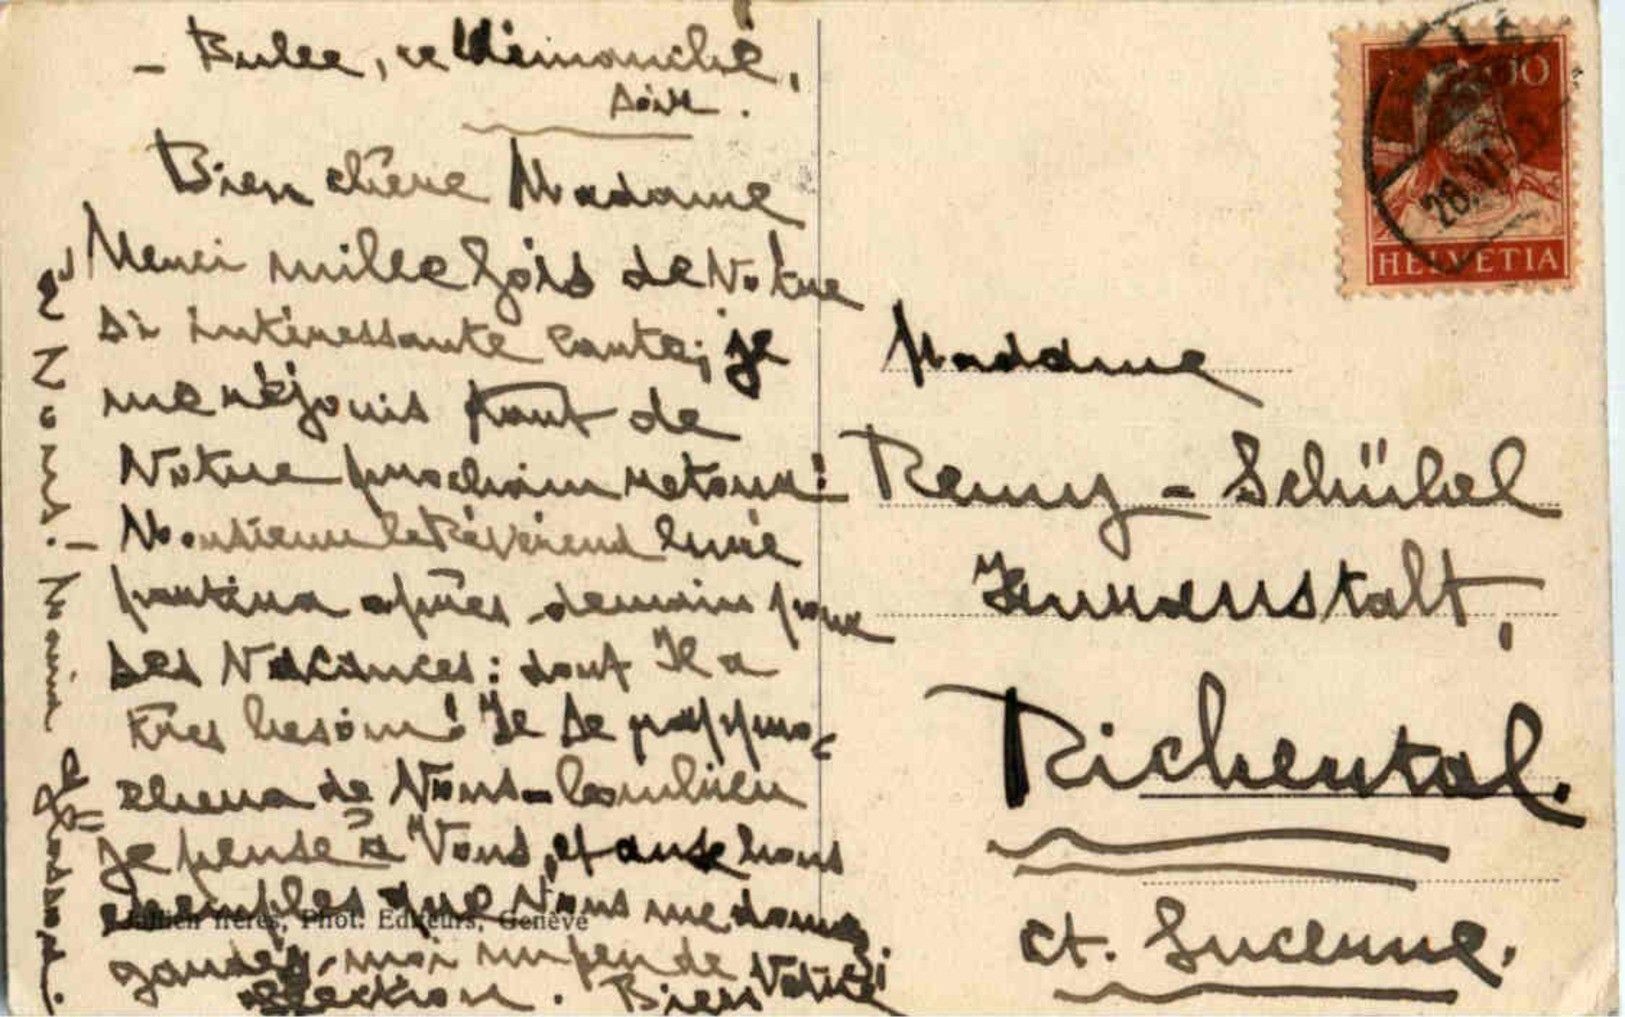 - Bulle, ce dimanche,
soir.
Bien chère Madame
Merci mille fois de Votre
si intéressante carte; je
me réjouis tant de
Votre prochain retour!
Monsieur le Révérend Curé
partira après-demain pour
ses Vacances: dont Il a
très besoin! Il se rappro-
chera de Vous - Combien
je pense à Vous, et aux bons
exemples que Vous me donnez!
gardez-moi un peu de Votre
affection. Bien
à Vous. - Maria Glasson.
Jullien frères, Phot. Editeurs, Genève
HELVETIA
Madame
Remy - Schübel
Kuranstalt,
Richental.
ct. Lucerne.